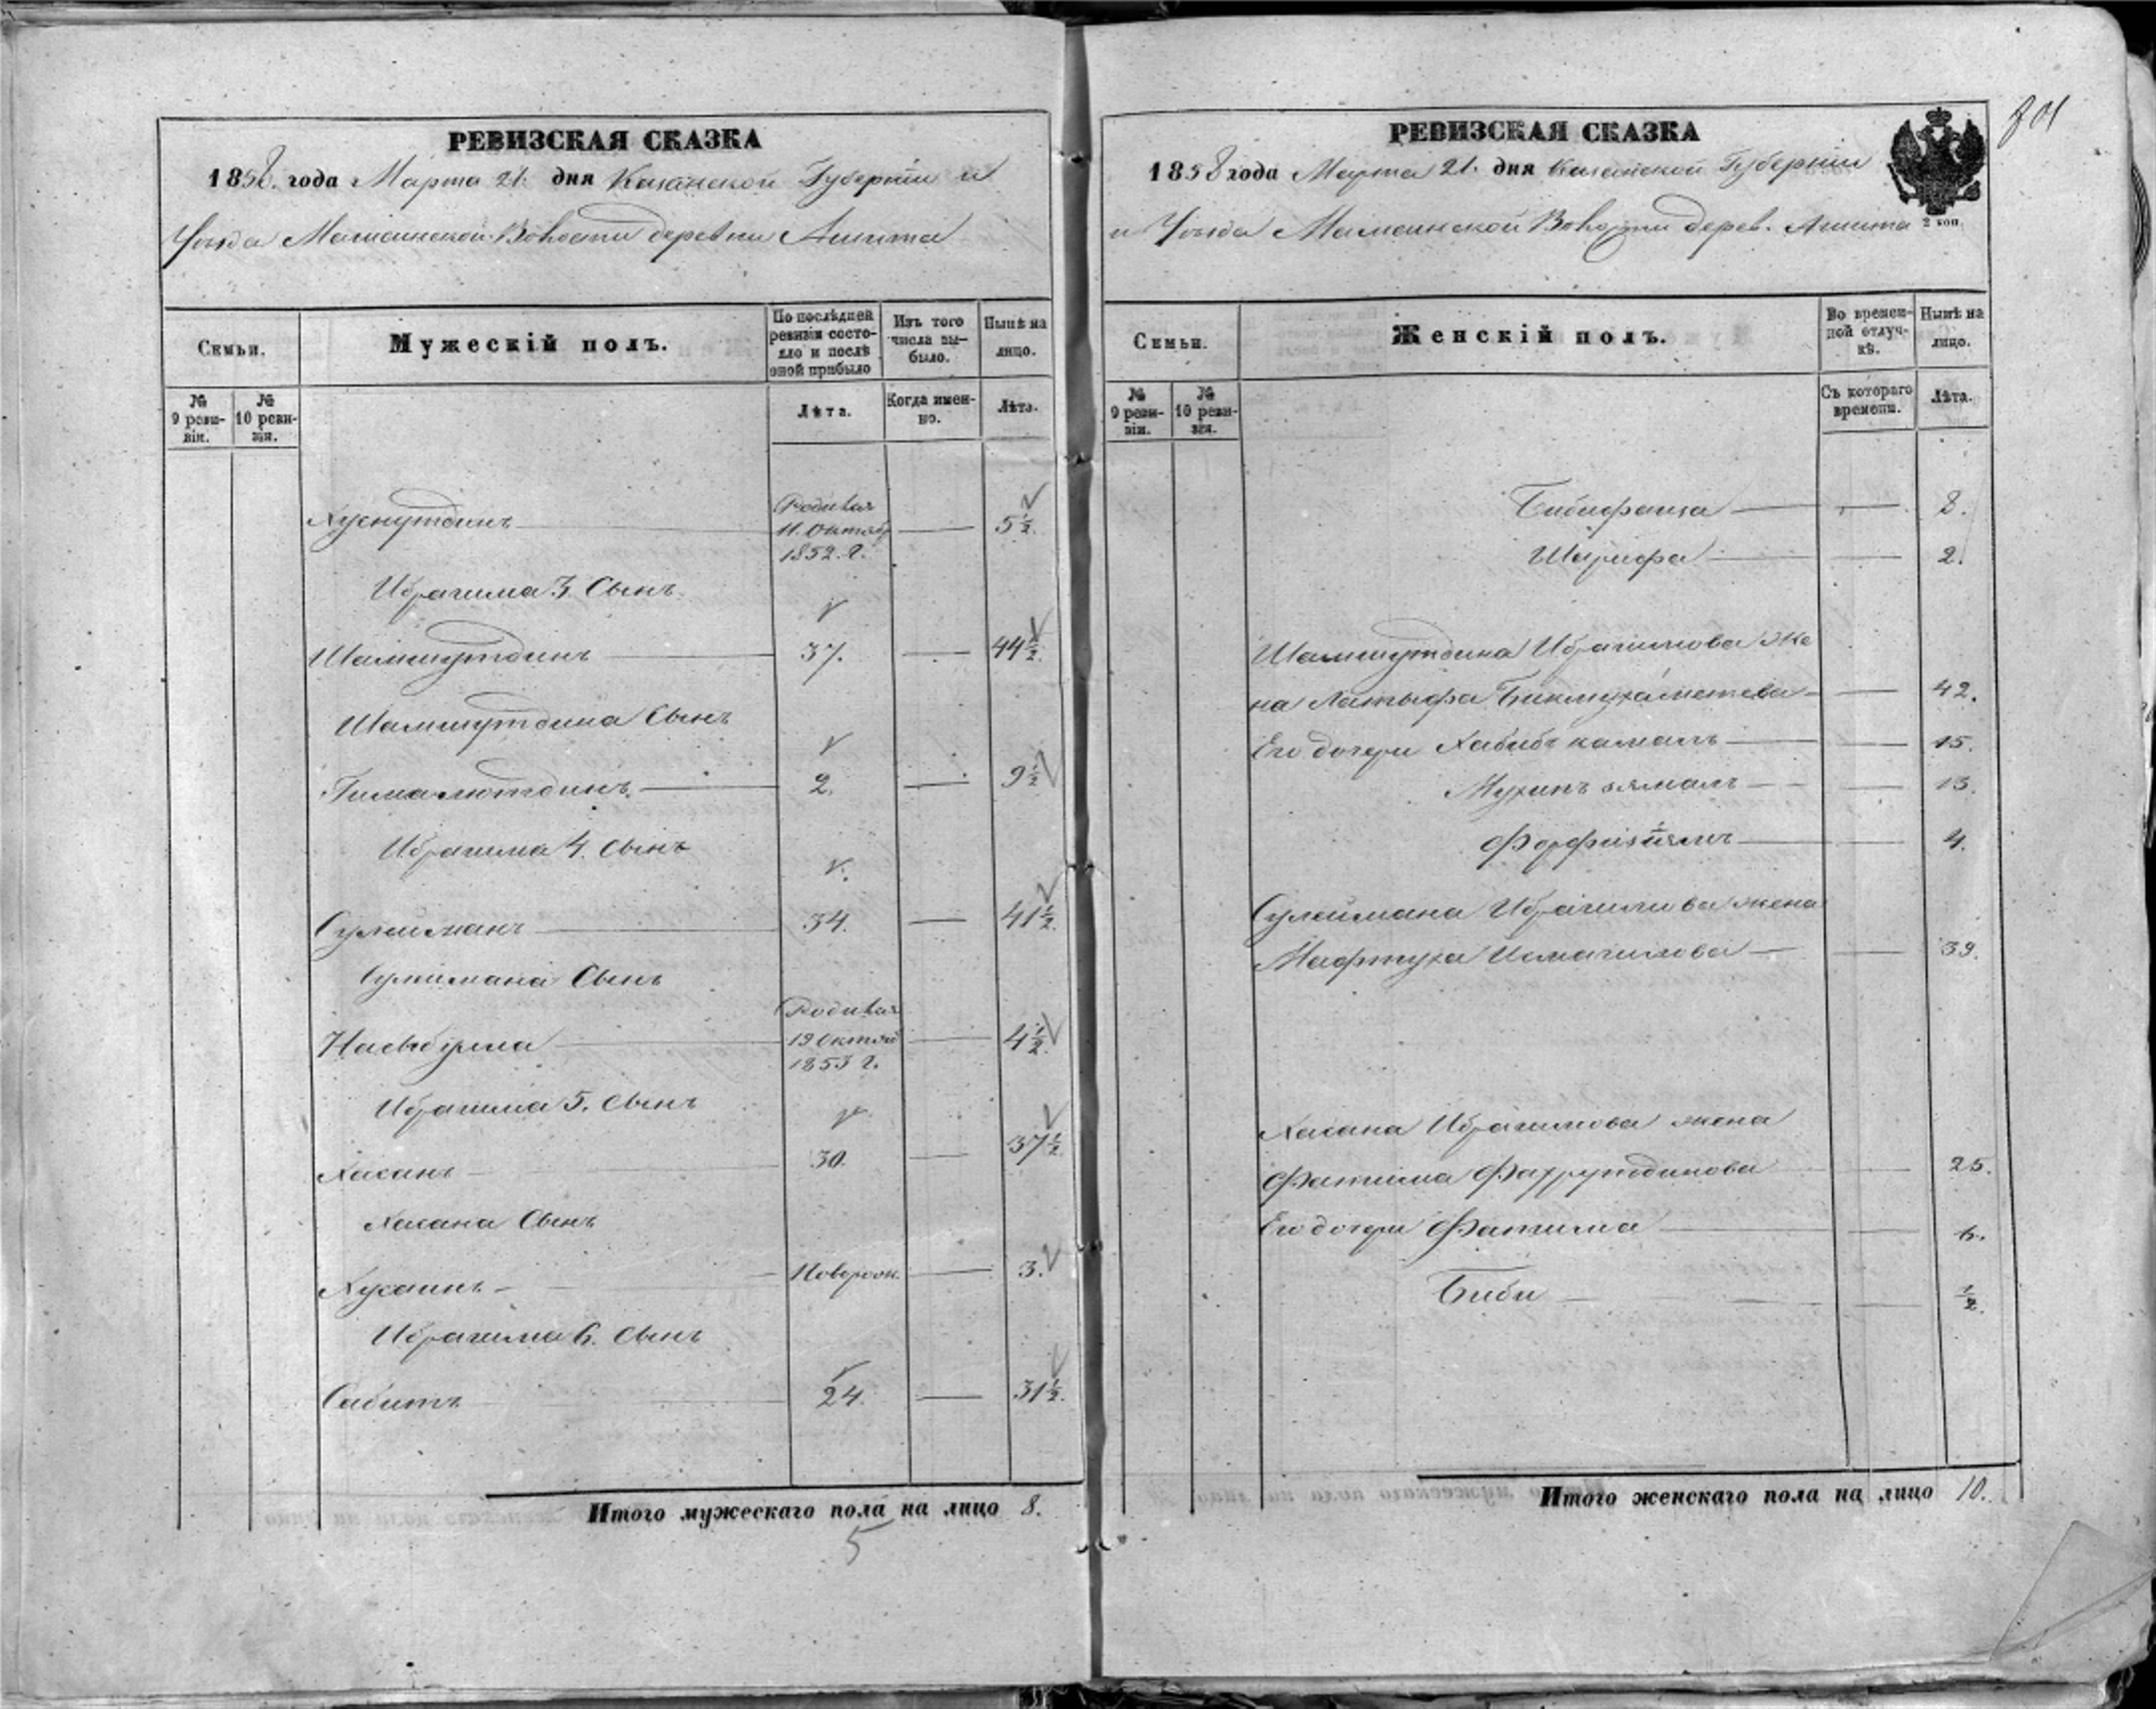 РЕВИЗСКАЯ СКАЗКА
1858. года Марта 21. дня Казанской Губерніи и
Уѣзда Мамсинской Волости деревни Ашита
Семьи.
Мужескій полъ.
По послѣдней ревизіи состояло и послѣ оной прибыло
Изъ того числа выбыло.
Нынѣ на лицо.
№ 9 ревизіи.
№ 10 ревизіи.
Лѣта.
Когда именно.
Лѣта.
Хуснутдинъ Родился 11. Октября 1852. г. 5½.
Ибрагима 3. Сынъ
Шамшутдинъ 37. 44½.
Шамшутдина Сынъ
Гималютдинъ 2. 9½
Ибрагима 4. Сынъ
Сулейманъ 34. 41½.
Сулимана Сынъ
Родился 19 Октяб 1853 г. 4½.
Ибрагима 5. Сынъ
Хасанъ 30. 37½
Хасана Сынъ
Хусаинъ Новорож. 3.
Ибрагима 6. Сынъ
Сабитъ 24. 31½.
Итого мужескаго пола на лицо 8.
5
801
РЕВИЗСКАЯ СКАЗКА
1858 года Марта 21. дня Казанской Губерніи
и Уѣзда Мамсинской Волости дерев. Ашита
2 коп.
Семьи.
Женскій полъ.
Во временной отлучкѣ.
Нынѣ на лицо.
№ 9 ревизіи.
№ 10 ревизіи.
Съ котораго времени.
Лѣта.
Бибифаиза 8.
Шарифа 2.
Шамшутдина Ибрагимова же
на Латыфа Бикмухаметева 42.
Его дочери Хабибъ камалъ 15.
13.
4.
Сулеймана Ибрагимова жена
Мафтуха Исмагилова 39.
Хасана Ибрагимова жена
Фатима Фахрутдинова 25.
Его дочери Фатима 6.
Биби ½.
Итого женскаго пола на лицо 10.